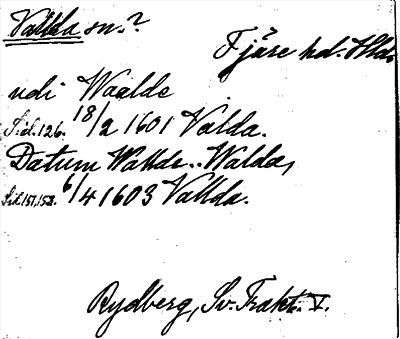 Vallda sn.?
Fjäre hd. Hlds
udi Waelde
Sid. 126. 18/2 1601 Valda.
Datum Wallde.. Walda,
Sid. 151, 152. 6/4 1603 Vallda.
Rydberg, Sv. Trakt. V.